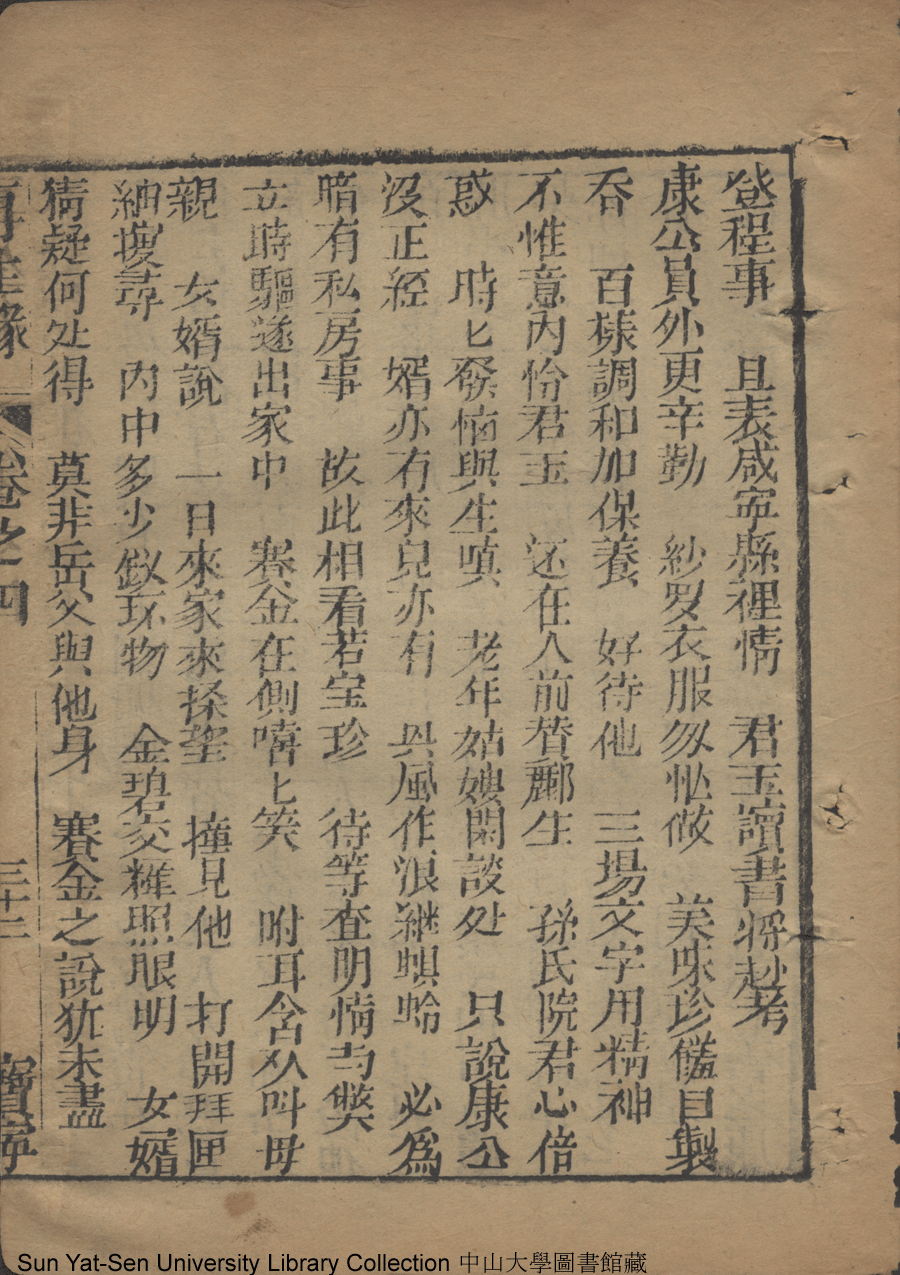 登程事　且表咸寧縣裡情　君玉讀書將赴考
康公員外更辛勤　紗罗衣服匆忙做　美味珍儲自製
吞　百樣調和加保養　好待他　三場文字用精神
不惟意內怡君玉　还在人前贊酈生　孫氏院君心倍
惑　時匕發惱與生嗔　老年姑嫂閑談处　只說康公
沒正經　婿亦有來兒亦有　兴風作浪継螟蛉　必為
暗有私房事　故此相看若宝珍　待等查明情与獘
立時驅逐出家中　賽金在側嘻匕笑　附耳含 叫母
親　女婿說　一日來家來探望　撞見他　打開拜匣
細搜尋　內中多少釵环物　金碧交輝照眼明　女婿
猜疑何处得　莫非岳父與他身　賽金之說犹未盡
再生緣　卷之四　三十二　寶寧
Sun Yat-Sen University Library Collection 中山大學圖書館藏